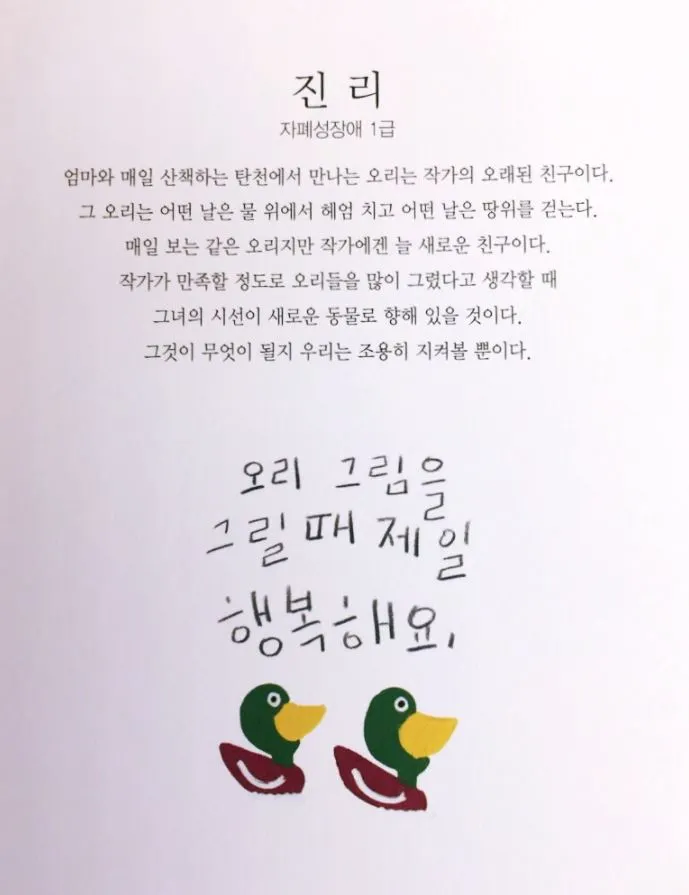 진 리
자폐성장애 1급
엄마와 매일 산책하는 탄천에서 만나는 오리는 작가의 오래된 친구이다.
그 오리는 어떤 날은 물 위에서 헤엄 치고 어떤 날은 땅위를 걷는다.
매일 보는 같은 오리지만 작가에겐 늘 새로운 친구이다.
작가가 만족할 정도로 오리들을 많이 그렸다고 생각할 때
그녀의 시선이 새로운 동물로 향해 있을 것이다.
그것이 무엇이 될지 우리는 조용히 지켜볼 뿐이다.
오리 그림을
그릴 때 제일
행복해요.